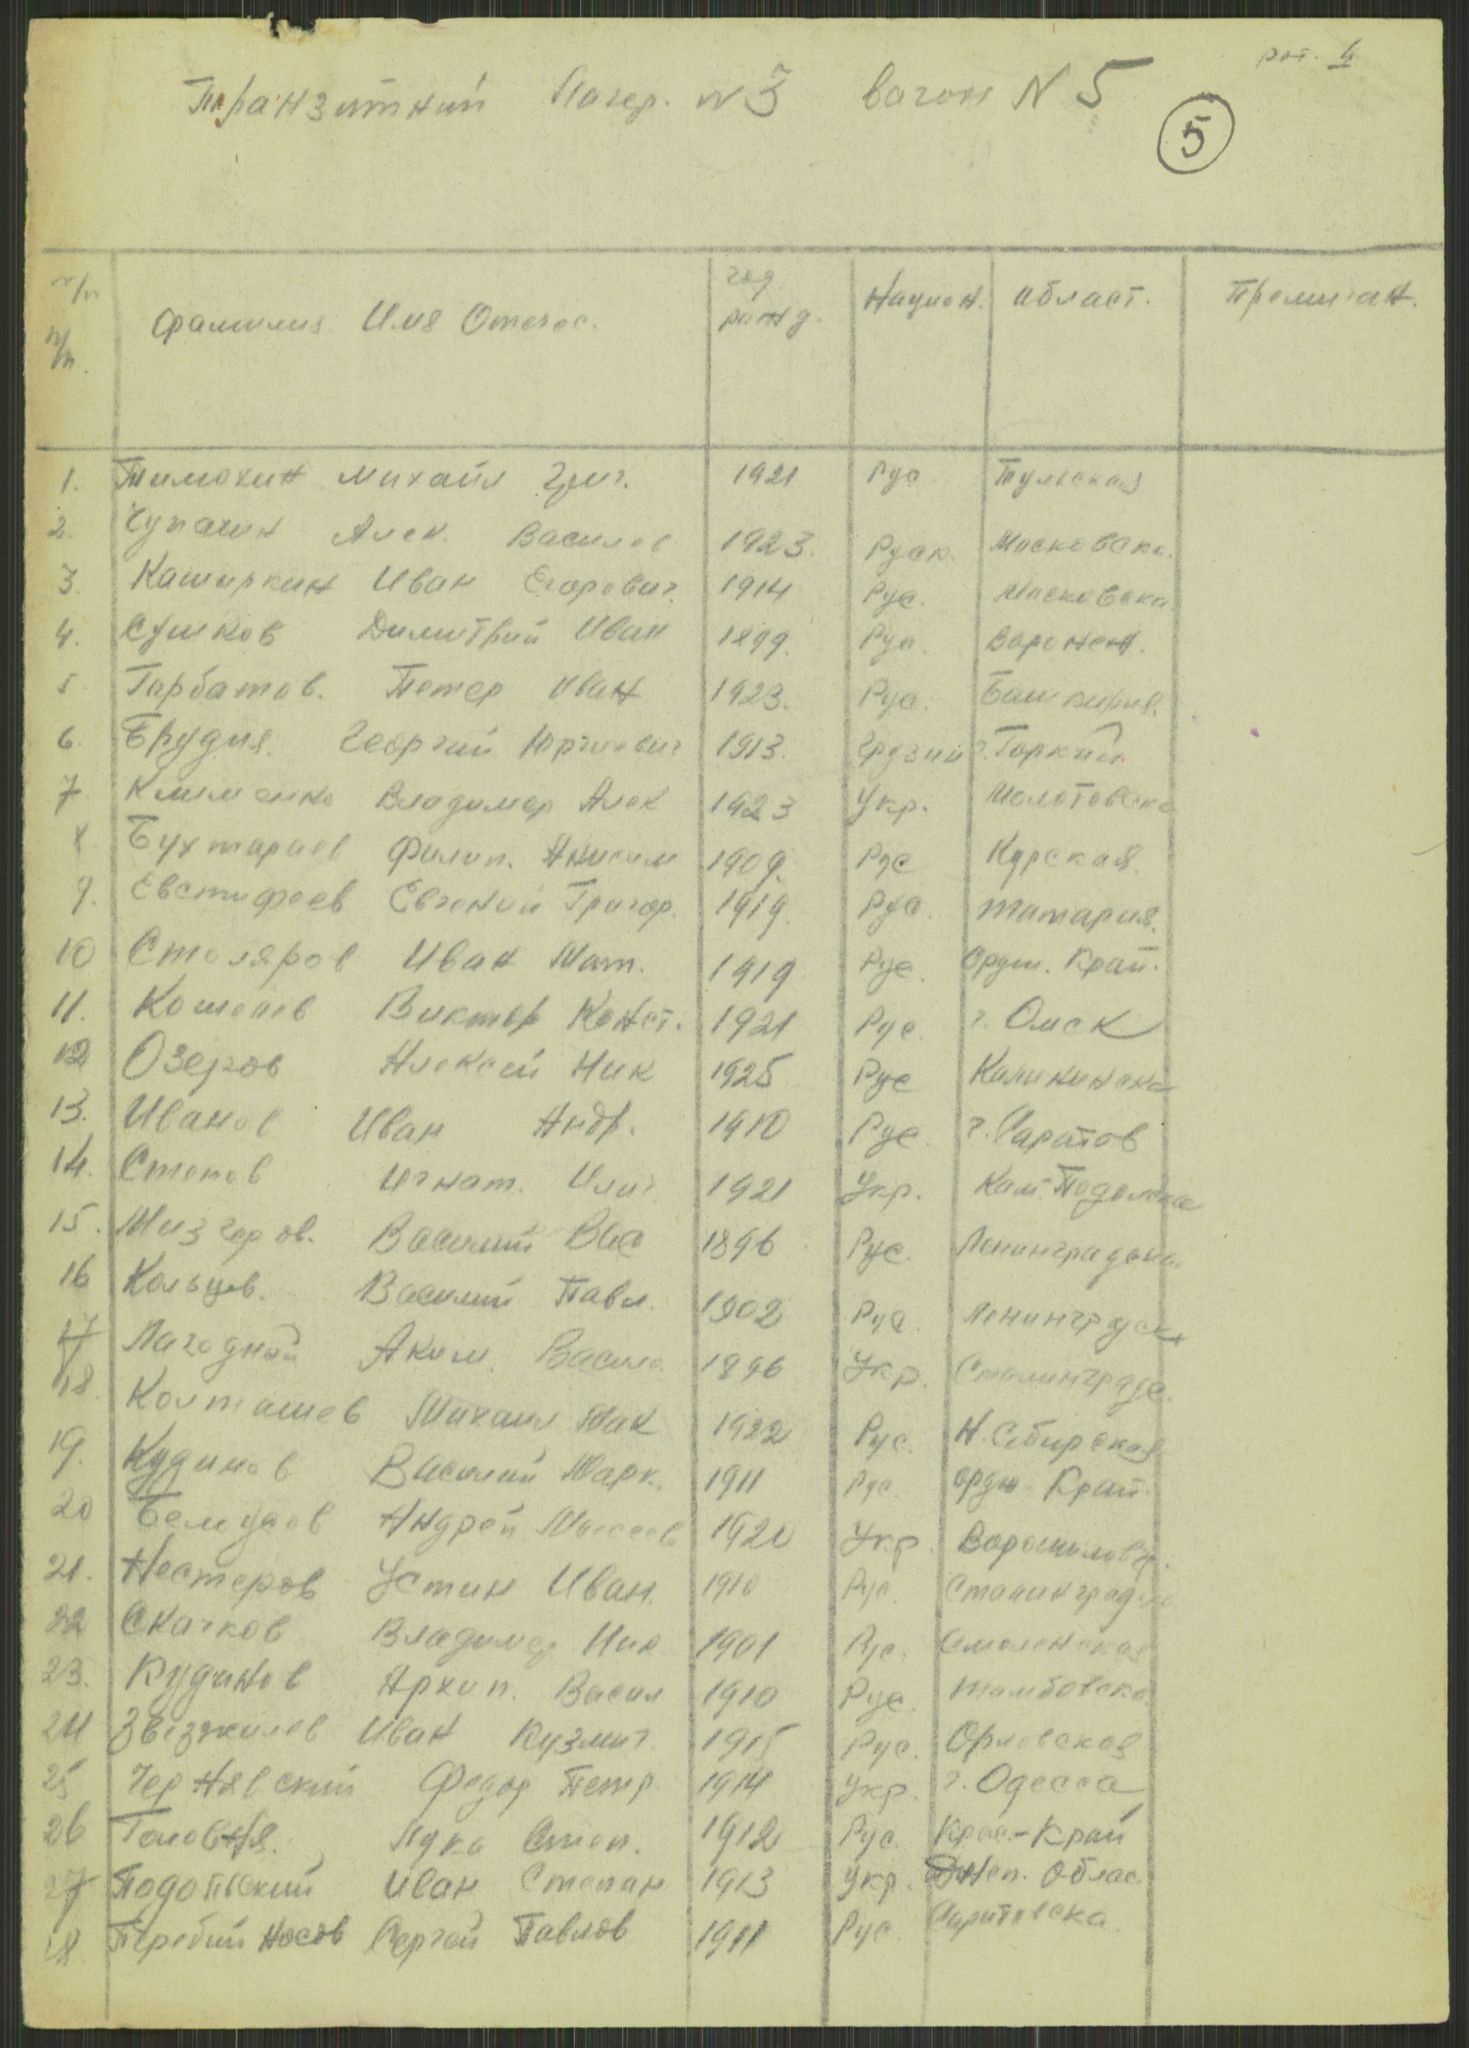 рот. 4
Транзитний Лагер. N 3 вагон N 5
5
п/п Фамилия Имя Отечес. год рожд. Национ. Област. Примечан.
1. Тимохин Михайл Григ. 1921 Рус Тульская
2. Чупахин Алек. Василев 1923. Руск. Московска.
3. Каширкин Иван Егорович. 1914 Рус. Московска
4. Сушков Димитрий Иван 1899. Рус. Воронеж.
5. Гарбатов. Петер Иван 1923. Рус. Башкирия.
6. Брудия. Георгий Юргиевич 1913. Грузин г. Горкий
7. Клименко Владимер Алек 1923 Укр. Молотовска
8. Бухтараев Филип. Анисим 1909. Рус Курская.
9. Евстифеев Евгений Григор. 1919. Рус. Татария.
10 Столяров Иван Мат. 1919 Рус. Ордж. Край.
11. Кошелев Виктор Конст. 1921 Рус. г. Омск
12 Озеров Алексей Ник 1925 Рус Калининска
13. Иванов Иван Андр. 1910 Рус. г. Саратов
14. Степов Игнат. Илич 1921 Укр. Кам. Подольска
15. Мизгеров. Василий Вас 1896 Рус. Ленинградска.
16 Кольцов. Василий Павл. 1902 Рус. Ленинградск
17 Лагодний Аким. Васил. 1896 Укр. Сталинградс.
18. Колташев Михаил Мак 1922 Рус. Н. Сибирская
19. Кудинов Василий Марк. 1911 Рус. Ордж. Край.
20 Белоусов Андрей Моисеев 1920 Укр. Ворошиловгр.
21. Нестеров Устин Иван. 1910 Рус. Сталинградс
22 Скачков Владимер Ник. 1901 Рус. Смоленская
23. Кудинов Архип. Васил 1910 Рус. Тамбовска
24 Звезжилев Иван Кузмич. 1915 Рус. Орловская
25 Чернявский Федор Петр 1914 Укр. г. Одесса
26 Головня. Лука Степ. 1912 Рус. Крас-Край
27 Подопьский Иван Степан 1913 Укр. Днеп. Облас
28. Перебий Носов Сергей Павлов 1911 Рус. Саратовска.